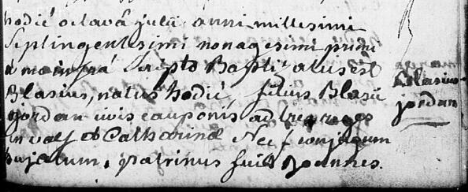 hodie octava julii, anni millesimi
Septingentesimi nonagesimi primi
a me Baptizatus est
Blasius, natus hodie filius Blasii
jordan civis cauponis ad tres reges
et Catharinæ conjugum
hujatum, patrinus fuit joannes
Blasius
jordan